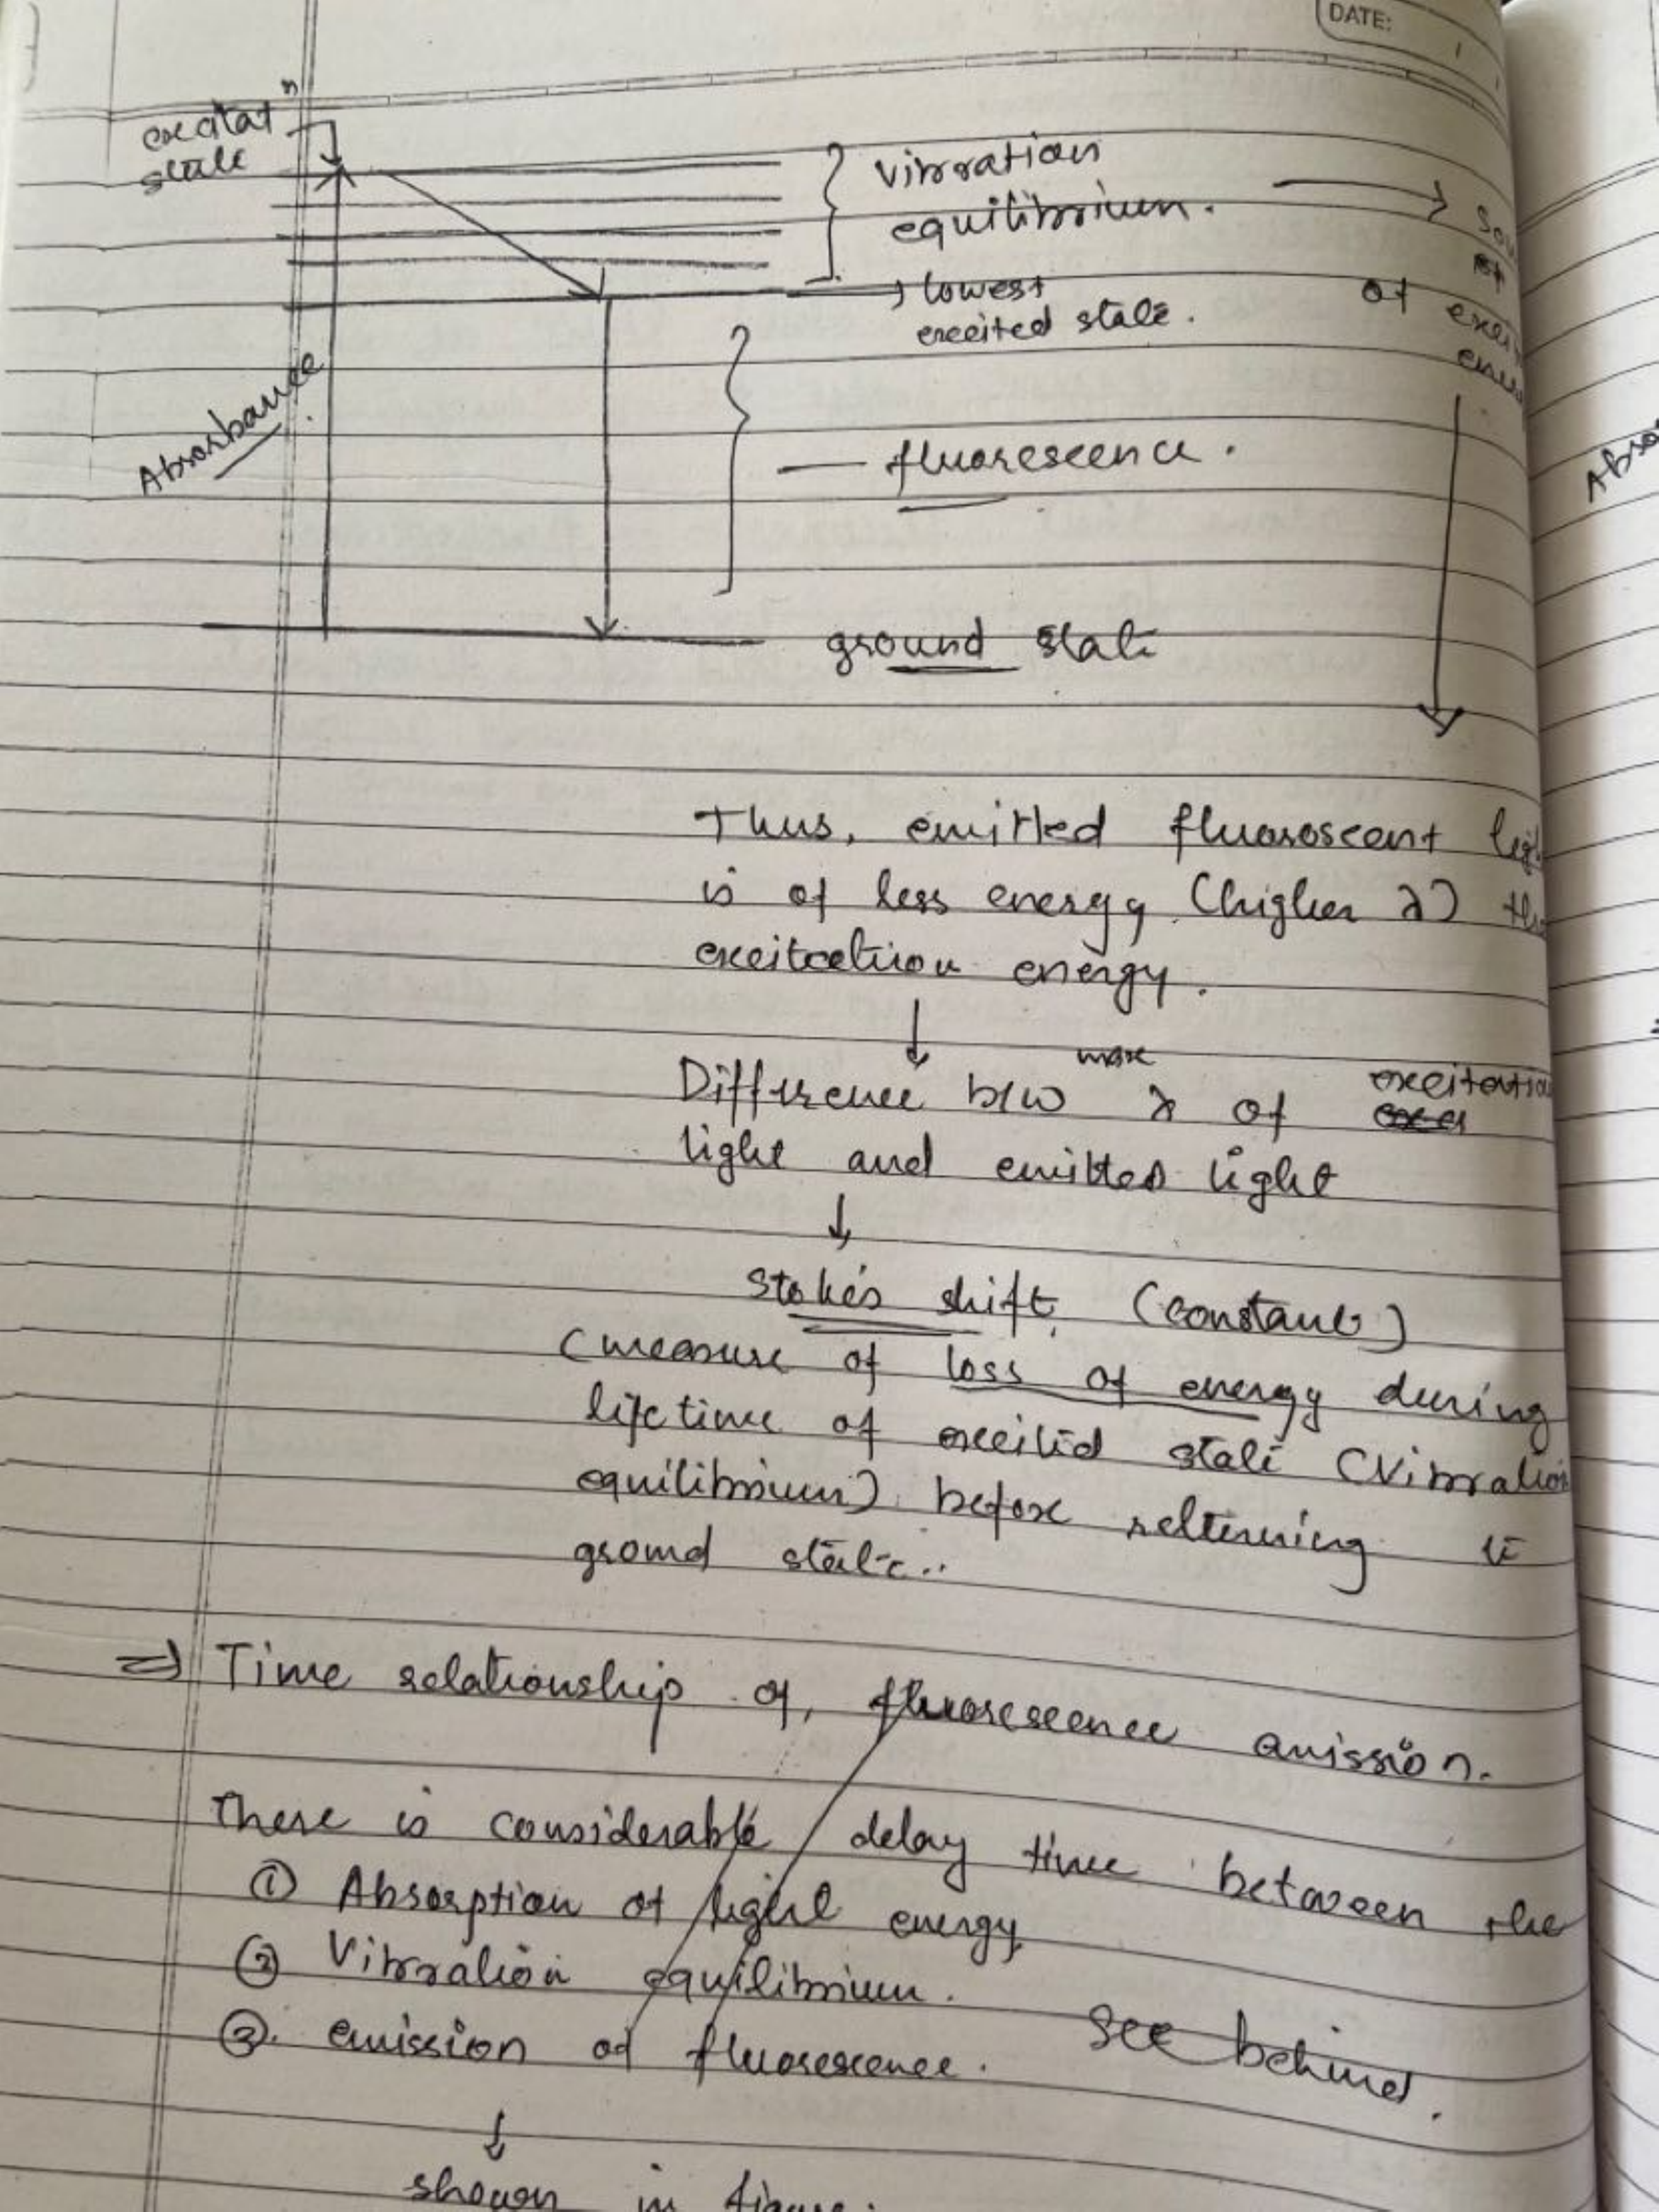 DATE:
excitatn
state
vibration
equilibrium.
lowest
excited state.
of
Absorbance
fluorescence.
ground state
Thus, emitted fluoroscent
is of less energy (higher λ)
energy.
Difference b/w max λ of excitation
light and emitted light
stoke's shift (constant)
(measure of loss of energy during
lifetime of excited state (Vibration
equilibrium) before returning to
ground state..
⇒ Time relationship of, fluorescence emission.
There is considerable delay time between the
① Absorption of light energy
② Vibration equilibrium.
③. emission of fluorescence.
See behind.
↓
shown in figure.